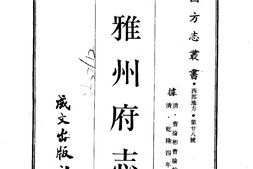 國方志叢書·西部地方·第廿八號
據清·曹掄彬曹掄翰
清·乾隆四年
雅州府志
成文出版社